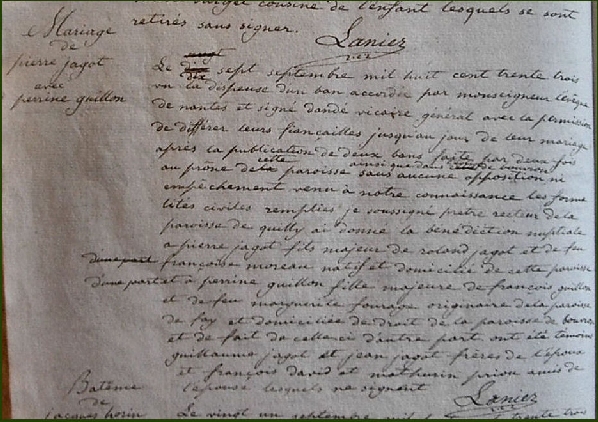 cousine de l'enfant lesquels se sont
retirés sans signer.
Laniez
Mariage
de
pierre jagot
avec
perrine guillon
vingt
Le dix sept septembre mil huit cent trente trois
dix
vu la dispense d'un ban accordée par monseigneur l'évêque
de nantes et signé dandé vicaire général avec la permission
de différer leurs fiancailles jusqu'au jour de leur mariage
après la publication de deux bans faite par deux fois
cette ainsi que dans
au prône de la paroisse sans aucune opposition ni
empêchement venu à notre connaissance les forma
lités civiles remplies je soussigné prêtre recteur de la
paroisse de quilly ai donné la bénédiction nuptiale
a pierre jagot fils majeur de roland jagot et de feu
d'une part françoise moreau natif et domicilié de cette paroisse
d'une part et à perrine guillon fille majeure de françois guillon
et de feu marguerite fourage originaire de la paroisse
de fay et domiciliée de droit de la paroisse de bouvron
et de fait de celle ci d'autre part ont été témoins
guillaume jagot et jean jagot frères de l'époux
et françois david et mathurin priou amis de
l'épouse lesquels ne signent
Laniez
Batême
de
jacques horin
Le vingt un septembre mil trente trois